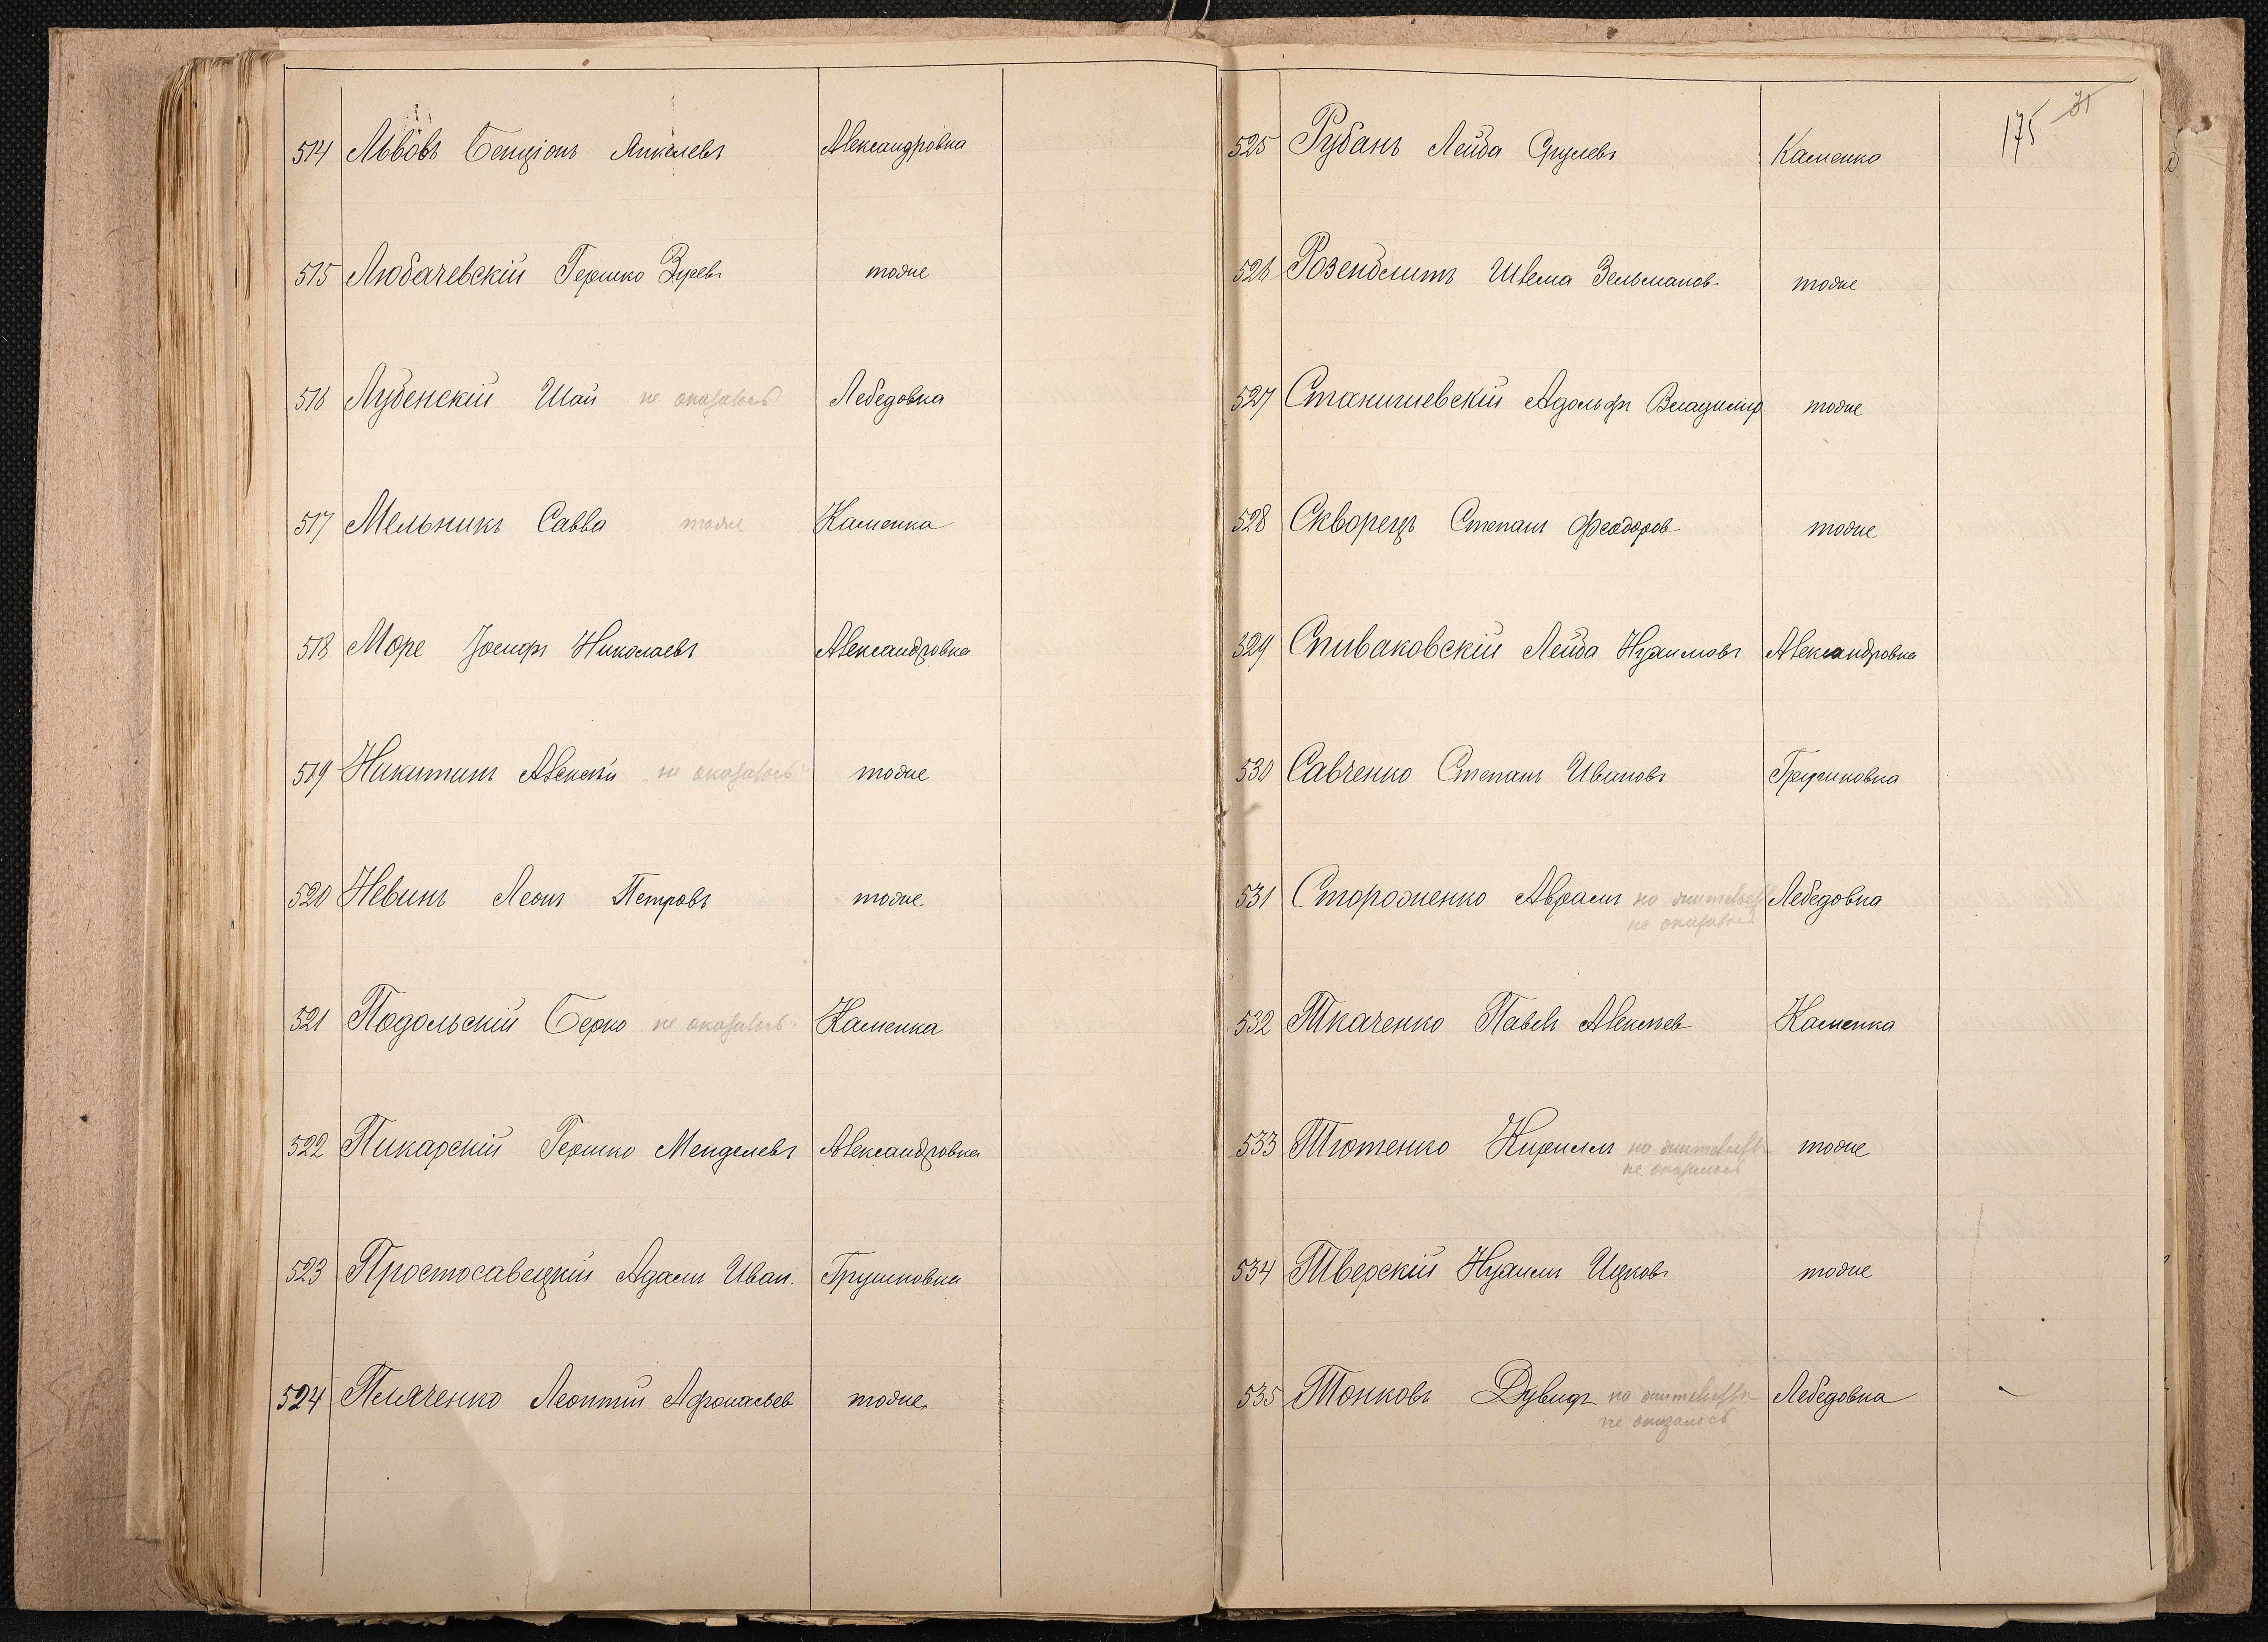 514 Львовъ Бенціонъ Янкелевъ Александровка
515 Любачевскій Гершко Зусевъ тоже
516 Лубенскій Шая не оказалось Лебедовка
517 Мельникъ Савва тоже Каменка
518 Море Іосифъ Николаевъ Александровка
519 Никитинъ Алексѣй не оказалось тоже
520 Невинъ Леонъ Петровъ тоже
521 Подольскій Берко не оказалось Каменка
522 Пикарскій Гершко Менделевъ Александровка
523 Простосавецкій Адамъ Иван. Грушковка
524 Пеляченко Леонтій Афонасьев тоже
175 71
525 Рубанъ Лейба Срулевъ Каменка
526 Розенблитъ Шлема Зельманов. тоже
527 Станишевскій Адольфъ Владимір тоже
528 Скворецъ Степанъ Феодоров тоже
529 Спиваковскій Лейба Нухимовъ Александровка
530 Савченко Степанъ Ивановъ Грушковка
531 Стороженко Авраамъ на жительств Лебедовка
не оказалось
532 Ткаченко Павелъ Алексѣев Каменка
533 Тютенко Кириллъ на жительств тоже
не оказалось
534 Тверскій Нухимъ Ицковъ тоже
535 Тонковъ Дувидъ на жительств Лебедовка
не оказалось